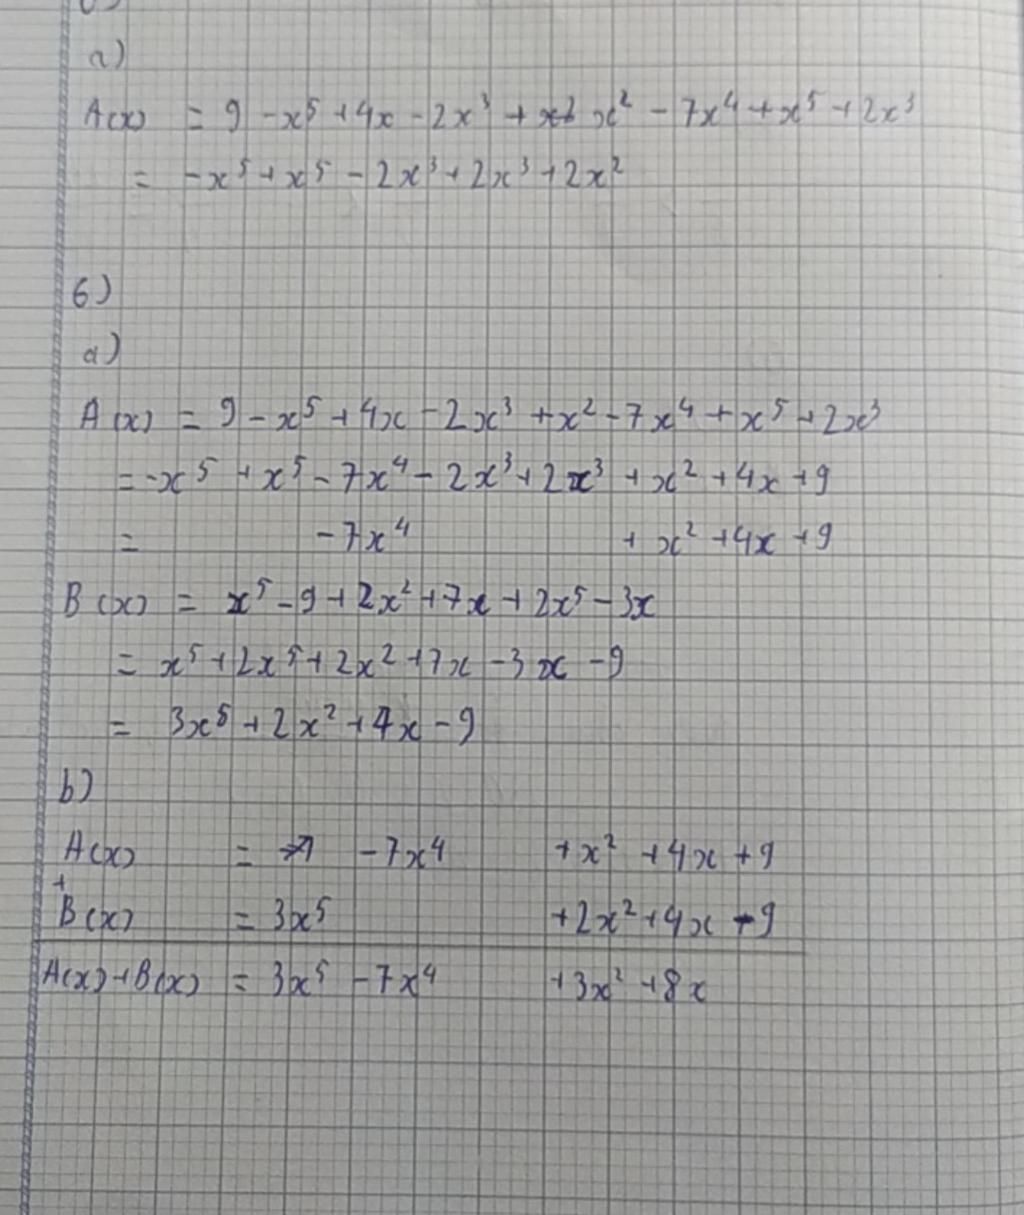 a)
A(x) = 9 - x⁵ + 4x - 2x³ + x² - 7x⁴ + x⁵ + 2x³
= -x⁵ + x⁵ - 2x³ + 2x³ + 2x²
6)
a)
A(x) = 9 - x⁵ + 4x - 2x³ + x² - 7x⁴ + x⁵ + 2x³
= -x⁵ + x⁵ - 7x⁴ - 2x³ + 2x³ + x² + 4x + 9
= -7x⁴ + x² + 4x + 9
B(x) = x⁵ - 9 + 2x² + 7x + 2x⁵ - 3x
= x⁵ + 2x⁵ + 2x² + 7x - 3x - 9
= 3x⁵ + 2x² + 4x - 9
b)
A(x) = -7x⁴ + x² + 4x + 9
+
B(x) = 3x⁵ + 2x² + 4x - 9
A(x) + B(x) = 3x⁵ - 7x⁴ + 3x² + 8x